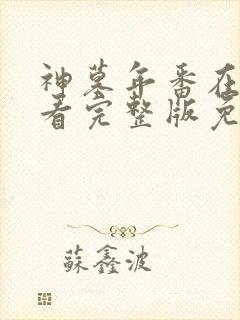 神墓年番在
看完整版免
蘇鑫波